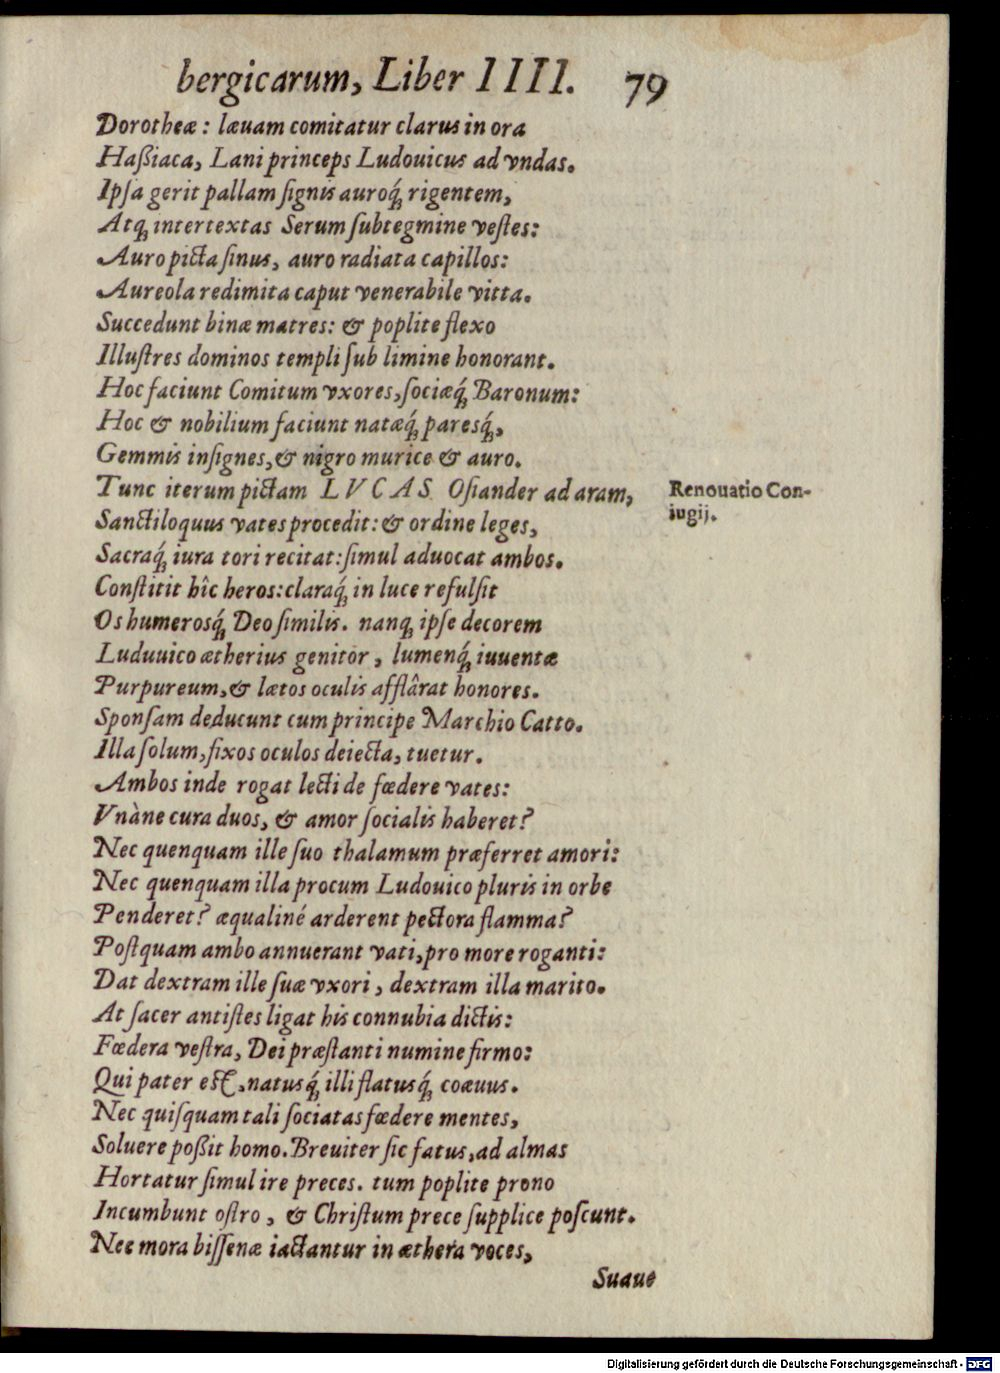 bergicarum, Liber IIII. 79
Dorotheæ: læuam comitatur clarus in ora
Haßiaca, Lani princeps Ludouicus ad vndas.
Ipſa gerit pallam ſignis auroq́ꝫ rigentem,
Atqꝫ intertextas Serum ſubtegmine veſtes:
Auro picta ſinus, auro radiata capillos:
Aureola redimita caput venerabile vitta.
Succedunt binæ matres: & poplite flexo
Illuſtres dominos templi ſub limine honorant.
Hoc faciunt Comitum vxores, ſociæq́ꝫ Baronum:
Hoc & nobilium faciunt natæq́ꝫ paresq́ꝫ,
Gemmis inſignes, & nigro murice & auro.
Tunc iterum pictam LVCAS Oſiander ad aram,
Renouatio Con-
iugij.
Sanctiloquus vates procedit: & ordine leges,
Sacraq́ꝫ iura tori recitat: ſimul aduocat ambos.
Conſtitit hîc heros: claraq́ꝫ in luce refulſit
Os humerosq́ꝫ Deo ſimilis. nanqꝫ ipſe decorem
Luduuico ætherius genitor, lumenq́ꝫ iuuentæ
Purpureum, & lætos oculis afflârat honores.
Sponſam deducunt cum principe Marchio Catto.
Illa ſolum, fixos oculos deiecta, tuetur.
Ambos inde rogat lecti de fœdere vates:
Vnàne cura duos, & amor ſocialis haberet?
Nec quenquam ille ſuo thalamum præferret amori:
Nec quenquam illa procum Ludouico pluris in orbe
Penderet? æqualiné arderent pectora flamma?
Poſtquam ambo annuerant vati, pro more roganti:
Dat dextram ille ſuæ vxori, dextram illa marito.
At ſacer antiſtes ligat his connubia dictis:
Fœdera veſtra, Dei præſtanti numine firmo:
Qui pater eſt, natusq́ꝫ illi flatusq́ꝫ coæuus.
Nec quiſquam tali ſociatas fœdere mentes,
Soluere poßit homo. Breuiter ſic fatus, ad almas
Hortatur ſimul ire preces. tum poplite prono
Incumbunt oſtro, & Chriſtum prece ſupplice poſcunt.
Nec mora biſſenæ iactantur in æthera voces,
Suaue
Digitalisierung gefördert durch die Deutsche Forschungsgemeinschaft - DFG